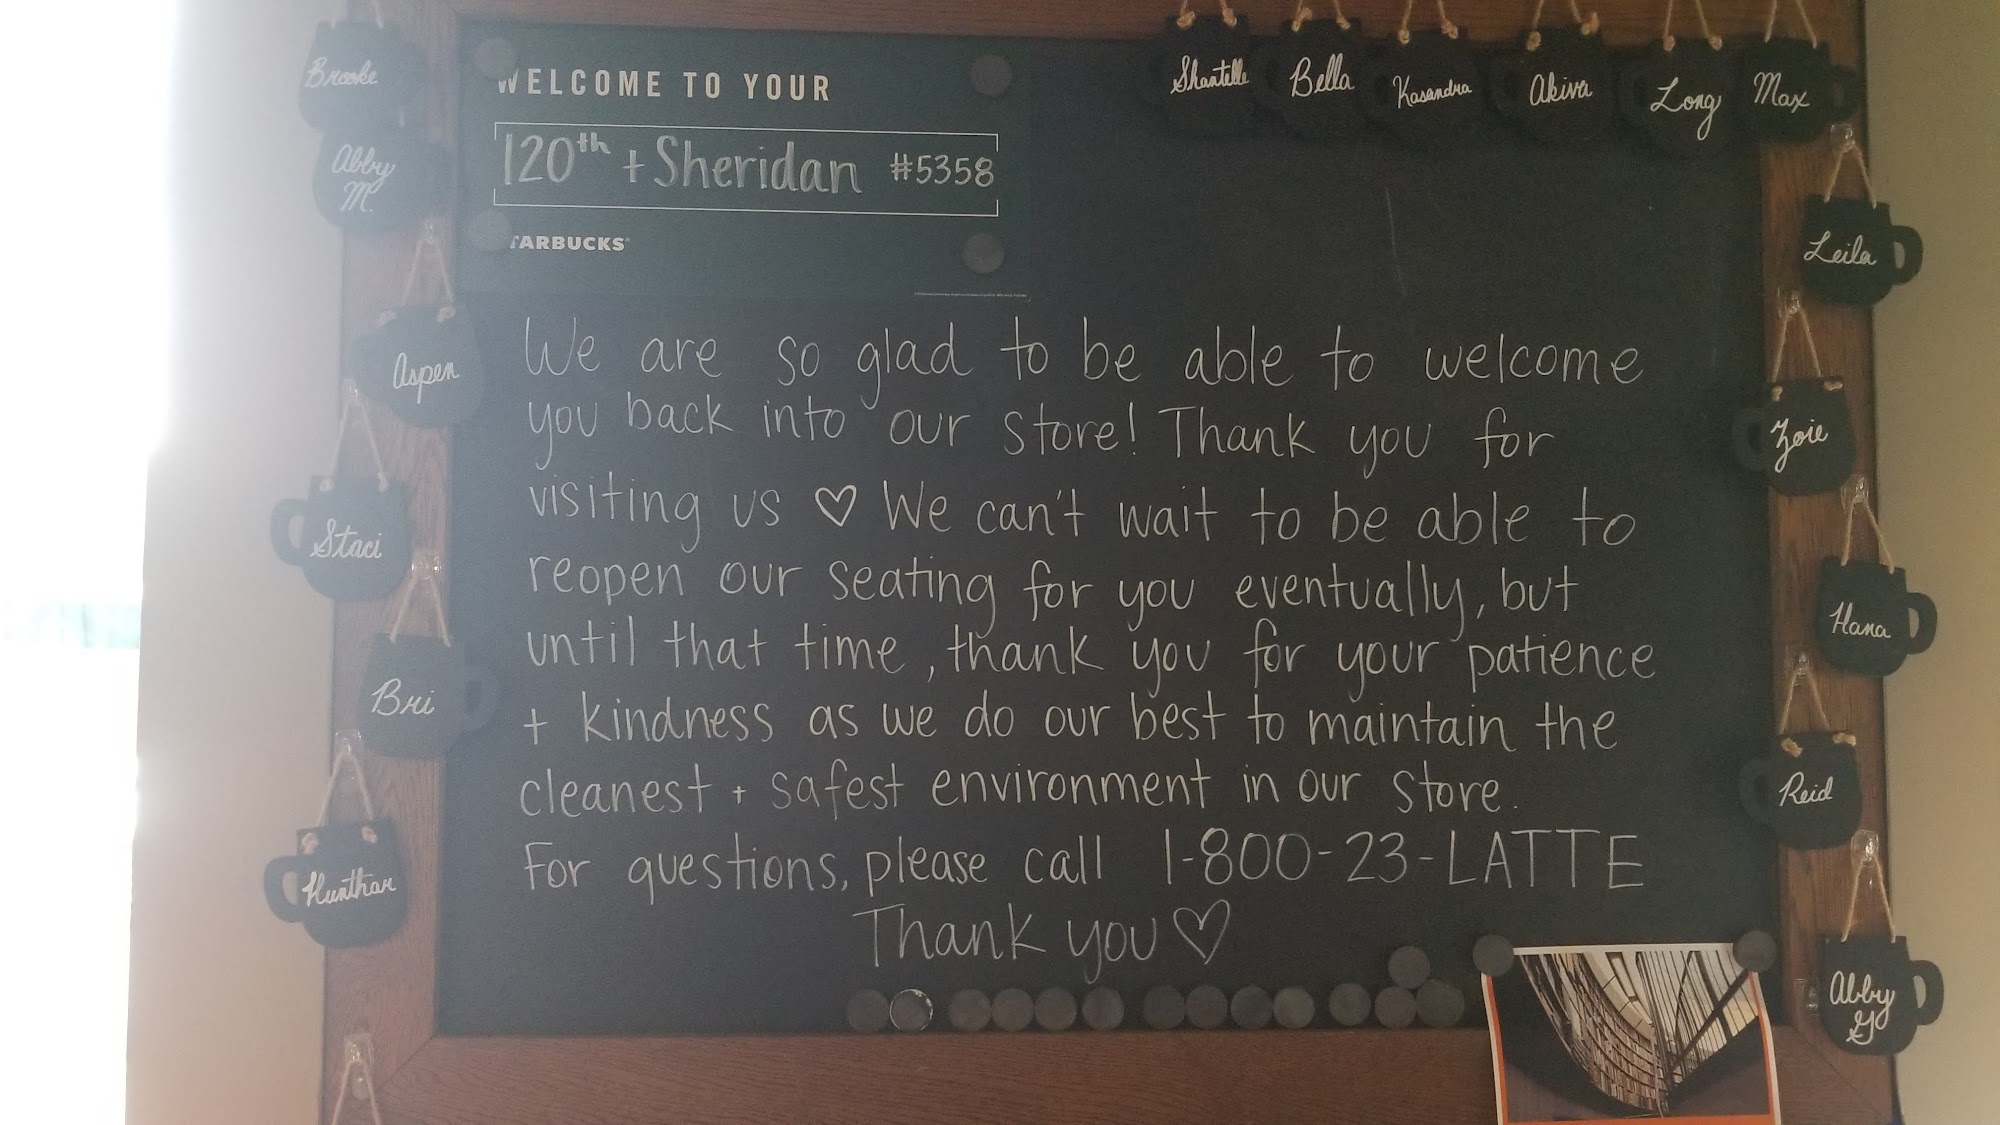 WELCOME TO YOUR
120th + Sheridan #5358
STARBUCKS
We are so glad to be able to welcome
you back into our store! Thank you for
visiting us ♡ We can't wait to be able to
reopen our seating for you eventually, but
until that time, thank you for your patience
+ kindness as we do our best to maintain the
cleanest + safest environment in our store.
For questions, please call 1-800-23-LATTE
Thank you ♡
Brooke
Abby
M.
Aspen
Staci
Bri
Hunthar
Shantelle
Bella
Kasandra
Akiva
Long
Max
Leila
Zoie
Hana
Reid
Abby
G